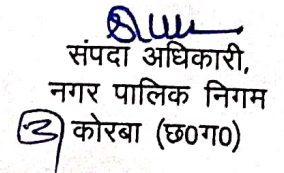 संपदा अधिकारी,
नगर पालिक निगम
कोरबा (छ०ग०)